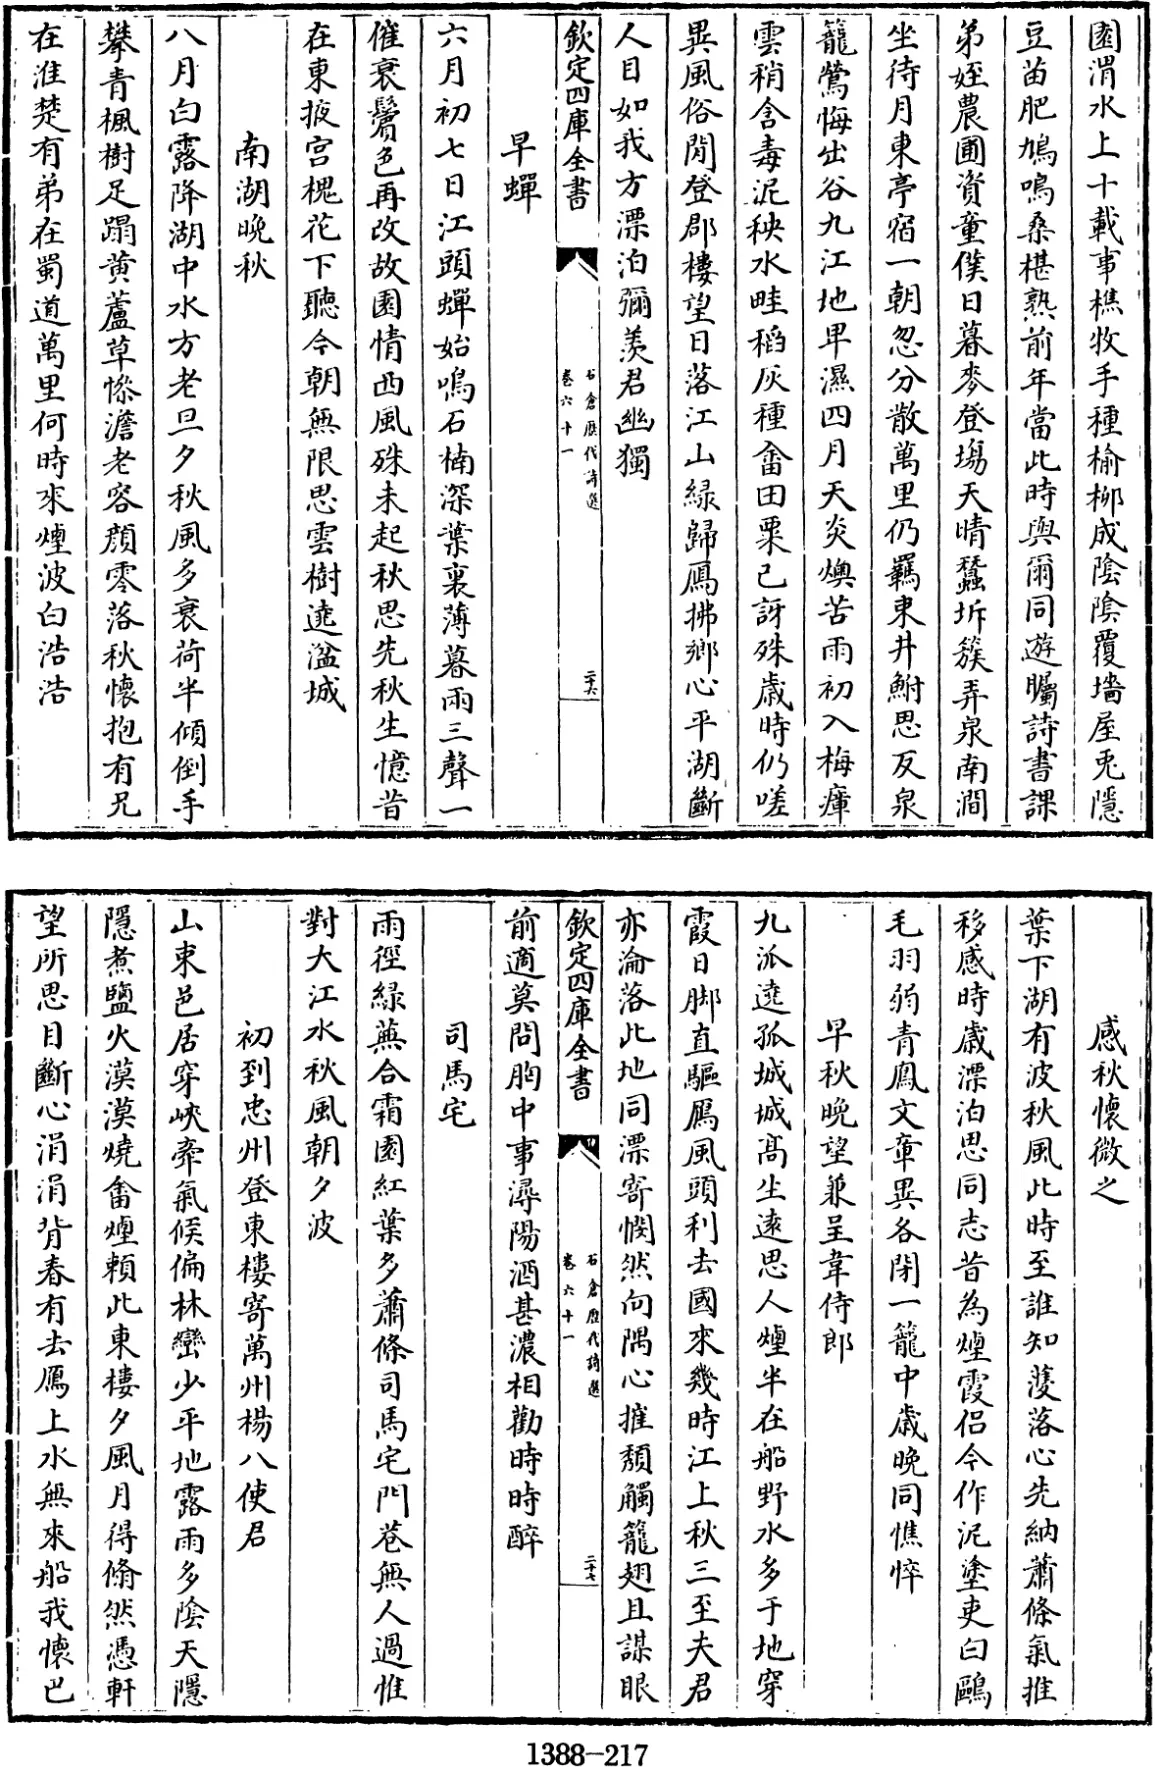 園渭水上十載事樵牧手種榆柳成陰陰覆墻屋兎隱
豆苗肥鳩鳴桑椹熟前年當此時與爾同遊矚詩書課
弟姪農圃資童僕日暮麥登塲天晴蠶坼簇弄泉南澗
坐待月東亭宿一朝忽分散萬里仍羈束井鮒思反泉
籠鶯悔出谷九江地卑濕四月天炎燠苦雨初入梅瘴
雲稍含毒泥秧水畦稻灰種畬田粟已訝殊歳時仍嗟
異風俗閒登郡樓望日落江山緑歸鴈拂鄉心平湖斷
人目如我方漂泊彌羨君幽獨
欽定四庫全書
石倉歷代詩選
卷六十一
二十六
早蟬
六月初七日江頭蟬始鳴石楠深葉裏薄暮兩三聲一
催衰鬢色再改故園情西風殊未起秋思先秋生憶昔
在東掖宮槐花下聽今朝無限思雲樹遶湓城
南湖晚秋
八月白露降湖中水方老旦夕秋風多衰荷半傾倒手
攀青楓樹足蹋黄蘆草慘澹老容顔零落秋懷抱有兄
在淮楚有弟在蜀道萬里何時來煙波白浩浩
感秋懷微之
葉下湖有波秋風此時至誰知濩落心先納蕭條氣推
移感時歳漂泊思同志昔為煙霞侣今作泥塗吏白鷗
毛羽弱青鳳文章異各閉一籠中歳晚同憔悴
早秋晚望兼呈韋侍郎
九派遶孤城城髙生逺思人煙半在船野水多于地穿
霞日脚直驅鴈風頭利去國來幾時江上秋三至夫君
亦淪落此地同漂寄憫然向隅心摧頽觸籠翅且謀眼
欽定四庫全書
石倉歷代詩選
卷六十一
二十七
前適莫問胸中事潯陽酒甚濃相勸時時醉
司馬宅
雨徑緑蕪合霜園紅葉多蕭條司馬宅門巷無人過惟
對大江水秋風朝夕波
初到忠州登東樓寄萬州楊八使君
山東邑居窄峽牽氣候偏林巒少平地露雨多陰天隱
隱煮鹽火漠漠燒畬煙頼此東樓夕風月得翛然憑軒
望所思目斷心涓涓背春有去鴈上水無來船我懷巴
1388-217